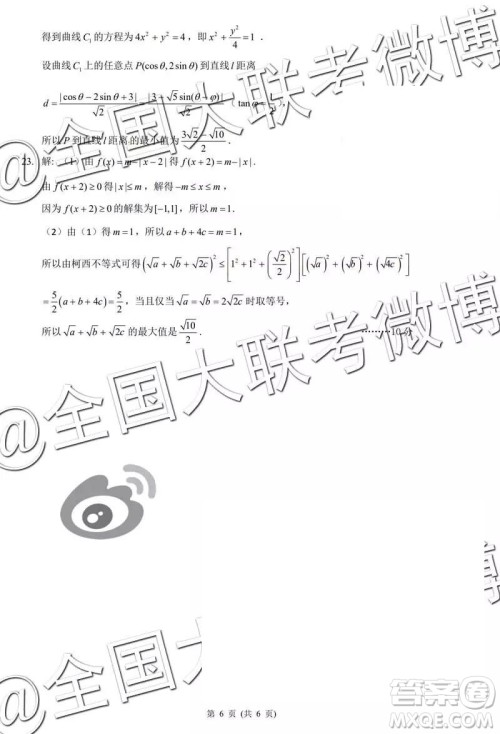 得到曲线 C₁ 的方程为 4x² + y² = 4，即 x² + y²/4 = 1．
设曲线 C₁ 上的任意点 P(cosθ, 2sinθ) 到直线 l 距离
d = |cosθ − 2sinθ + 3|/√2 = |3 + √5 sin(θ+φ)|/√2 (tanφ
所以 P 到直线 l 距离的最小值为 (3√2 − √10)/2．
23. 解:（1）由 f(x) = m − |x − 2| 得 f(x+2) = m − |x|．
由 f(x+2) ≥ 0 得 |x| ≤ m，解得 −m ≤ x ≤ m，
因为 f(x+2) ≥ 0 的解集为 [−1,1]，所以 m = 1．
（2）由（1）得 m = 1，所以 a + b + 4c = m = 1，
所以由柯西不等式可得 (√a + √b + √2c)² ≤ [1² + 1² + (√2/2)²][(√a)² + (√b)² + (√4c)²]
= 5/2 (a + b + 4c) = 5/2，当且仅当 √a = √b = 2√2c 时取等号，
所以 √a + √b + √2c 的最大值是 √10/2．
10 分
@全国大联考微博
@全国大联考微博
第 6 页 (共 6 页)
答案圈
MXQE.COM